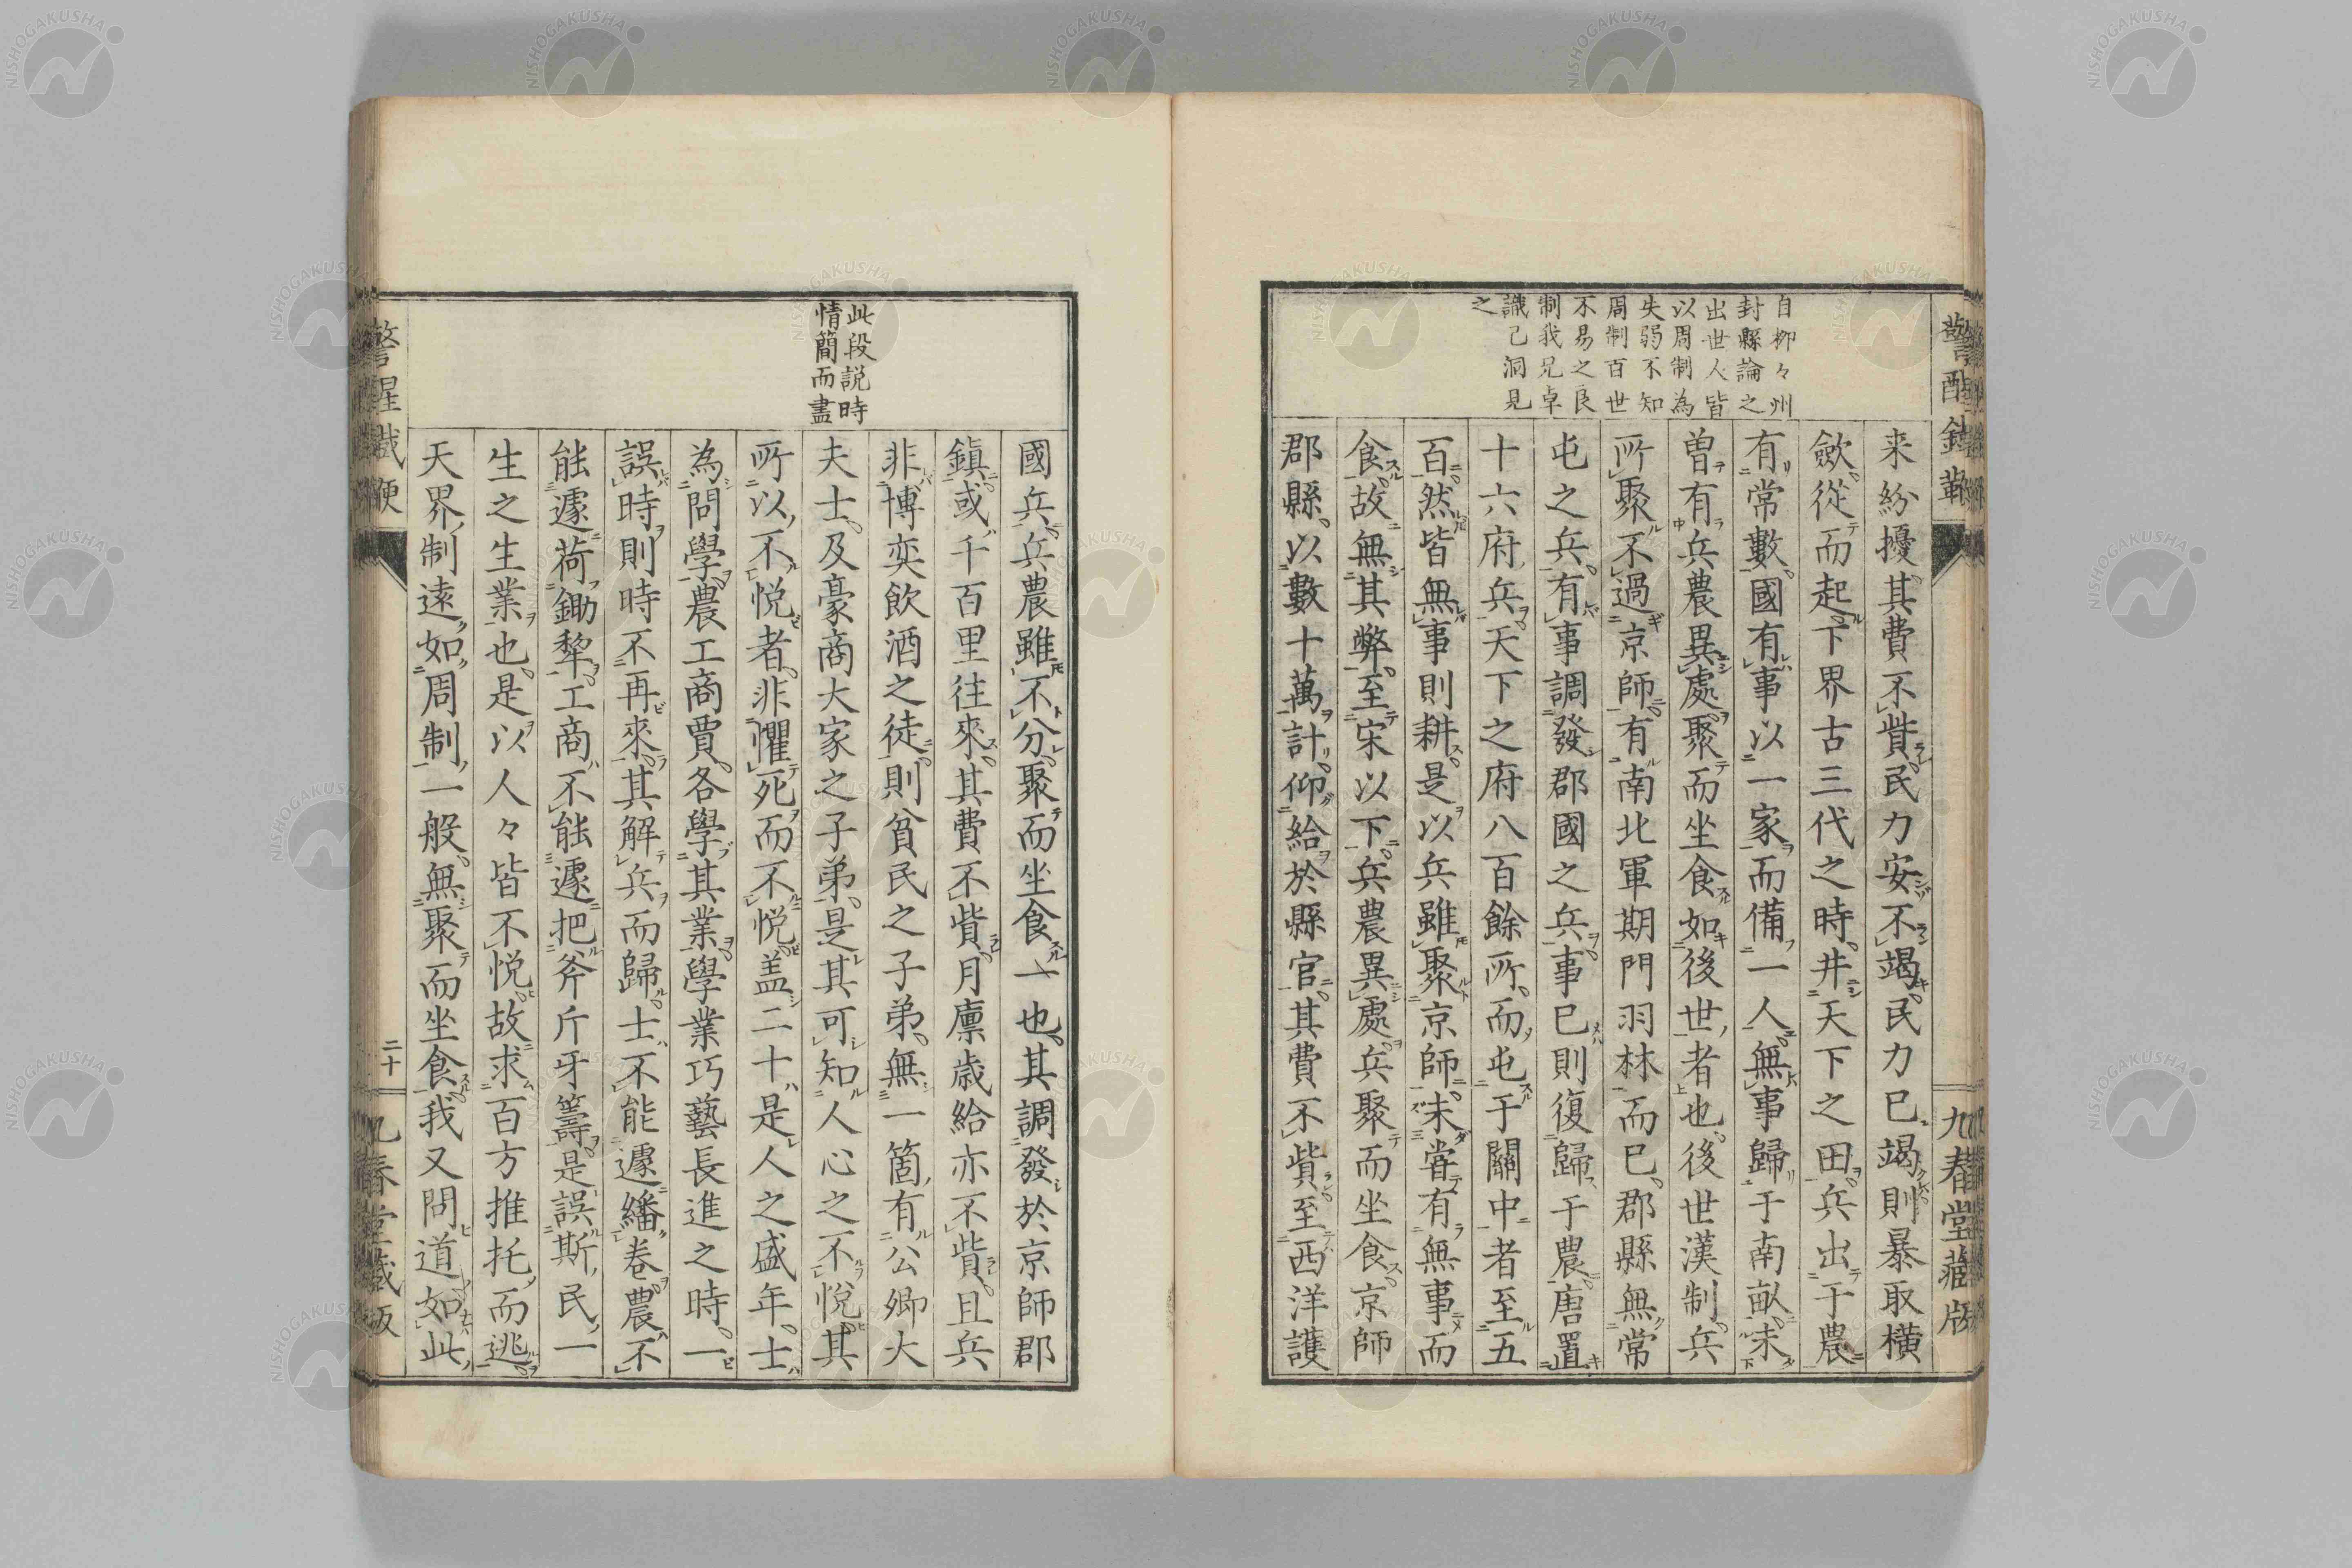 自柳々州
封縣論之
出世人皆
以周制為
失弱不知
周制百世
不易之良
制我兄卓
識已洞見
之
来紛擾其費不貲民力安不竭民力已竭則暴取横
歛從而起下界古三代之時井天下之田兵出于農
有常數國有事以一家而備一人無事歸于南畝未
曽有兵農異處聚而坐食如後世者也後世漢制兵
所聚不過京師有南北軍期門羽林而已郡縣無常
屯之兵有事調發郡國之兵事已則復歸于農唐置
十六府兵天下之府八百餘所而屯于關中者至五
百然皆無事則耕是以兵雖聚京師未甞有無事而
食故無其弊至宋以下兵農異處兵聚而坐食京師
郡縣以數十萬計仰給於縣官其費不貲至西洋護
此段説時
情簡而盡
國兵兵農雖不分聚而坐食一也其調發於京師郡
鎮或千百里往來其費不貲月廪歳給亦不貲且兵
非博奕飲酒之徒則貧民之子弟無一箇有公卿大
夫士及豪商大家之子弟是其可知人心之不悦其
所以不悦者非懼死而不悦盖二十是人之盛年士
為問學農工商賈各學其業學業巧藝長進之時一
誤時則時不再來其解兵而歸士不能遽繙巻農不
能遽荷鋤犂工商不能遽把斧斤牙籌是誤斯民一
生之生業也是以人々皆不悦故求百方推托而逃
天界制遠如周制一般無聚而坐食我又問道如此
二十
九春堂藏版